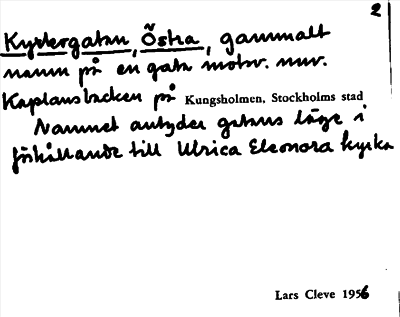 2
Kyrkergatan, Östra, gammalt
namn på en gata motsv. nuv.
Kaplansbacken på Kungsholmen, Stockholms stad
Namnet antyder gatans läge i
förhållande till Ulrica Eleonora kyrka
Lars Cleve 1956